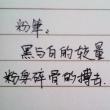 粉笔。
黑与白的较量
粉身碎骨的搏击